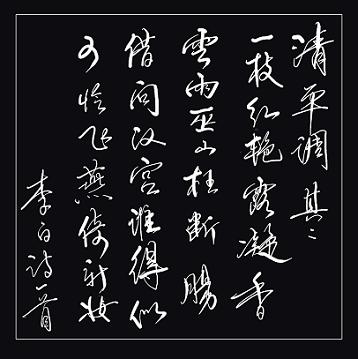 清平调 其二
一枝红艳露凝香
云雨巫山枉断肠
借问汉宫谁得似
可怜飞燕倚新妆
李白诗一首